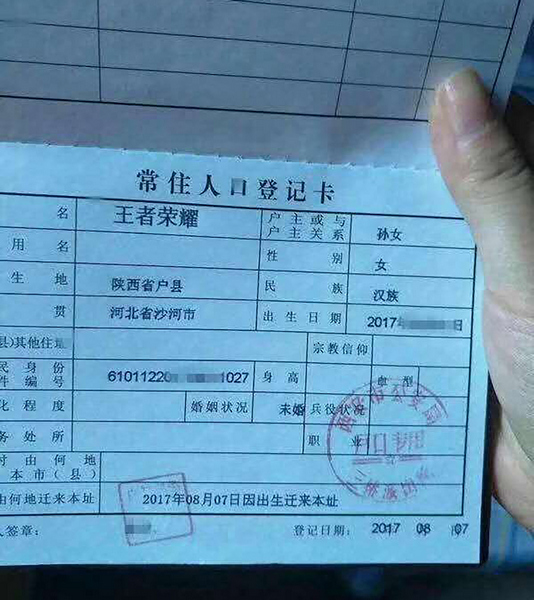 常住人口登记卡
名 王者荣耀 户主或与户主关系 孙女
用名 性别 女
生地 陕西省户县 民族 汉族
贯 河北省沙河市 出生日期 2017年 日
县)其他住 宗教信仰
民身份
件编号 6101122 1027 身高
化程度 婚姻状况 未婚 兵役状况
务处所 职业
时由何地
本市(县)
由何地迁来本址 2017年08月07日因出生迁来本址
人签章: 登记日期: 2017 08 07
户口专用